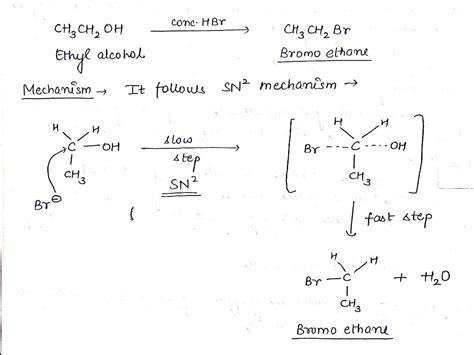 CH₃CH₂OH conc. HBr CH₃CH₂Br
Ethyl alcohol Bromo ethane
Mechanism → It follows SN² mechanism →
H H H H
C — OH slow Br --- C ---- OH
step
CH₃ SN² CH₃
Br⊖
fast step
H H
Br — C + H₂O
CH₃
Bromo ethane